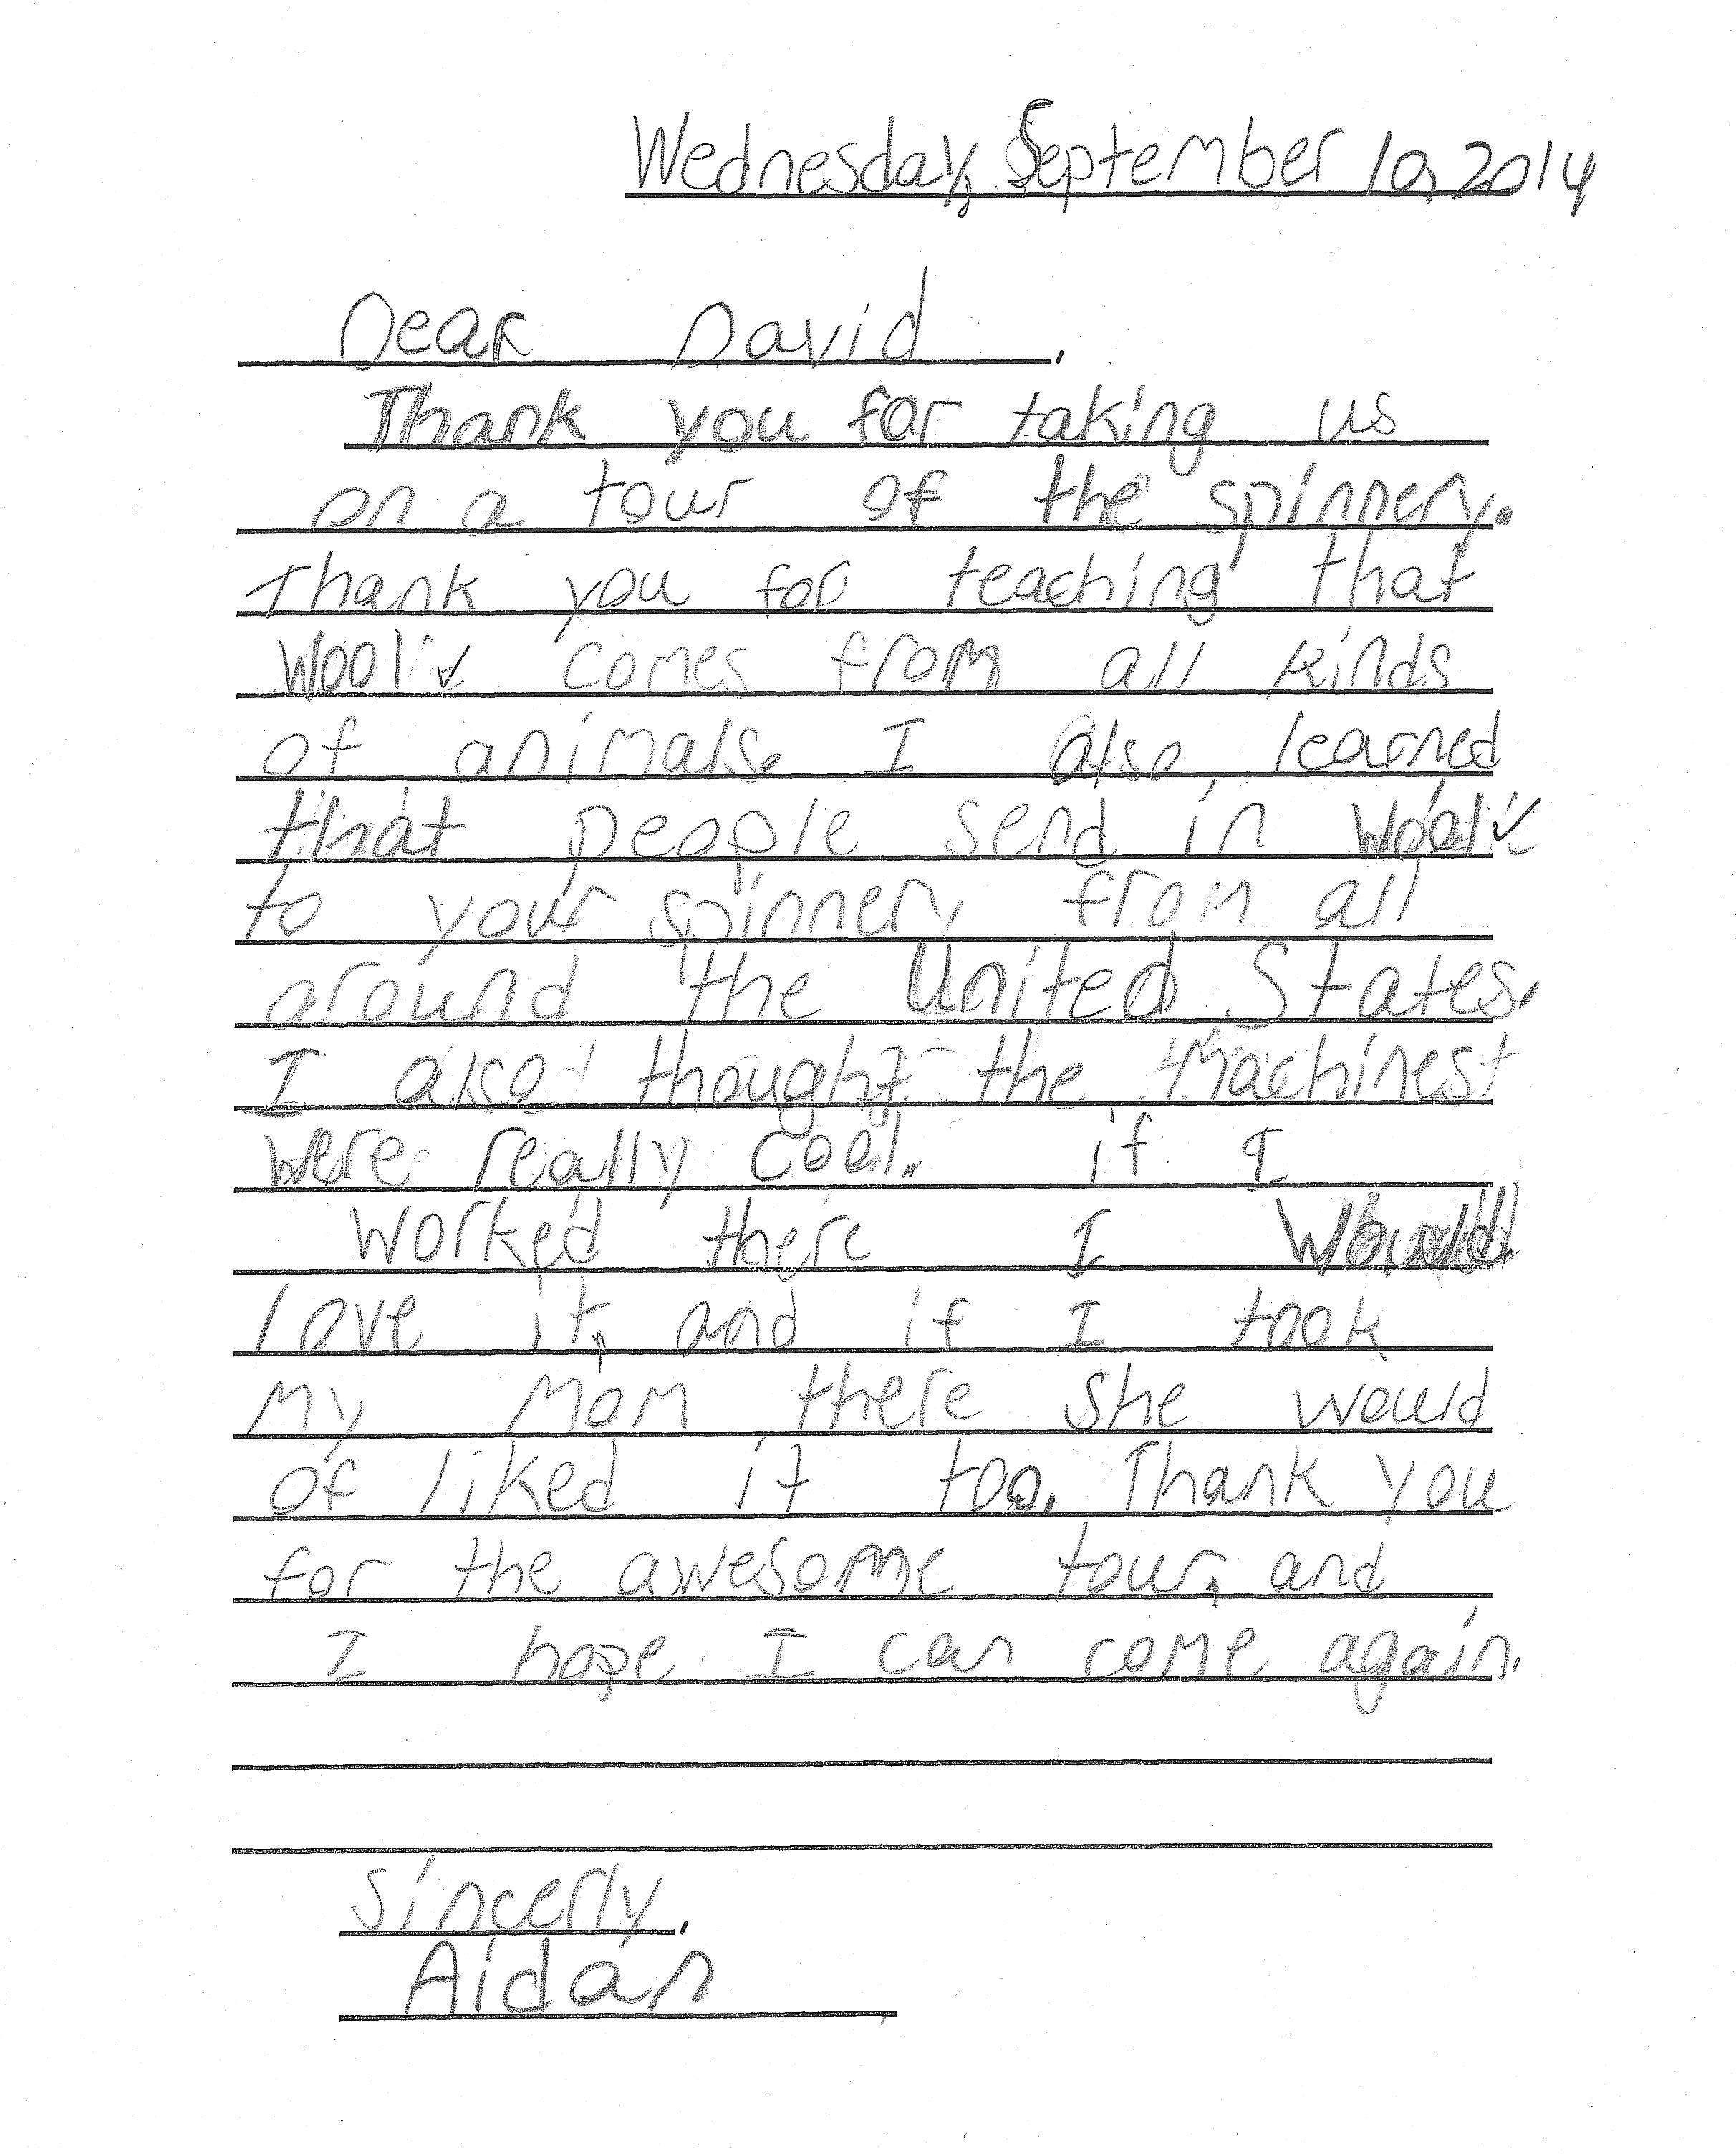 Wednesday, September 10, 2014
Dear David,
Thank you for taking us
on a tour of the spinnery.
Thank you for teaching that
Wool comes from all kinds
of animals. I also learned
that people send in Wool
to your spinnery from all
around the United States.
I also thought the Machines
were really cool. if I
worked there I Would
love it, and if I took
My Mom there she would
of liked it too. Thank you
for the awesome tour, and
I hope I can come again.
Sincerly,
Aidan